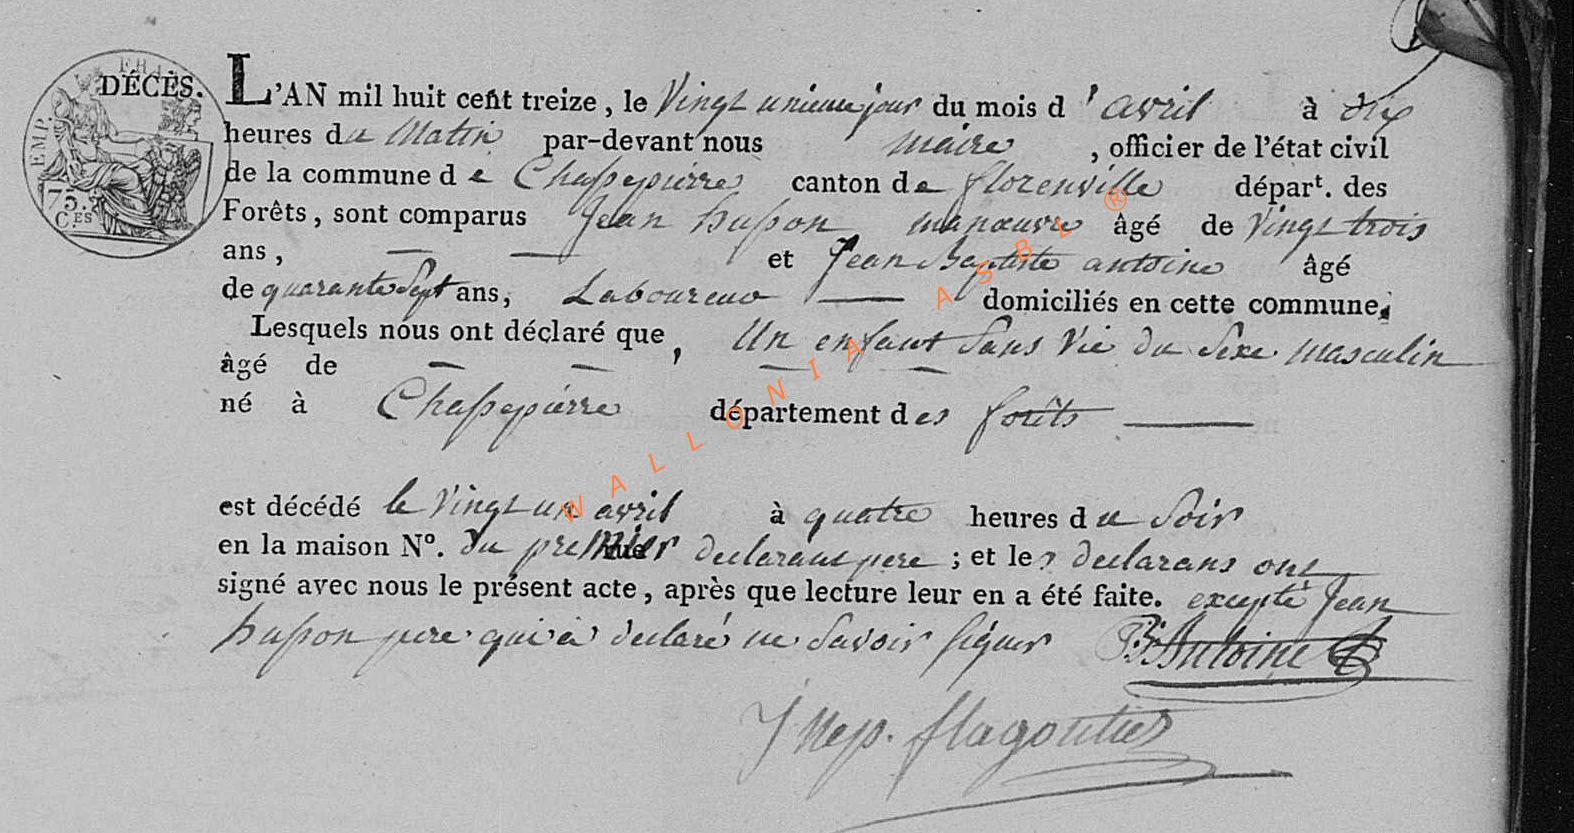 DÉCÈS. L'AN mil huit cent treize, le Vingt unieme jour du mois d' avril à dix
heures du Matin par-devant nous maire, officier de l'état civil
de la commune de Chassepierre canton de florenville départ. des
Forêts, sont comparus Jean husson manœuvre âgé de Vingt trois
ans, — — et Jean Baptiste antoine âgé
de quarante Sept ans, Laboureur — domiciliés en cette commune.
Lesquels nous ont déclaré que, Un enfant Sans Vie du Sexe masculin
âgé de — — — —
né à Chassepierre département des forêts —
est décédé le Vingt un avril à quatre heures du Soir
en la maison N°. du premier declarant pere ; et les declarans ont
signé avec nous le présent acte, après que lecture leur en a été faite. excepté Jean
husson pere qui a declaré ne Savoir signer JB Antoine
J Nep. flagontier
EMP. FRAN
75.
C.ES
WALLONIA ASBL ®